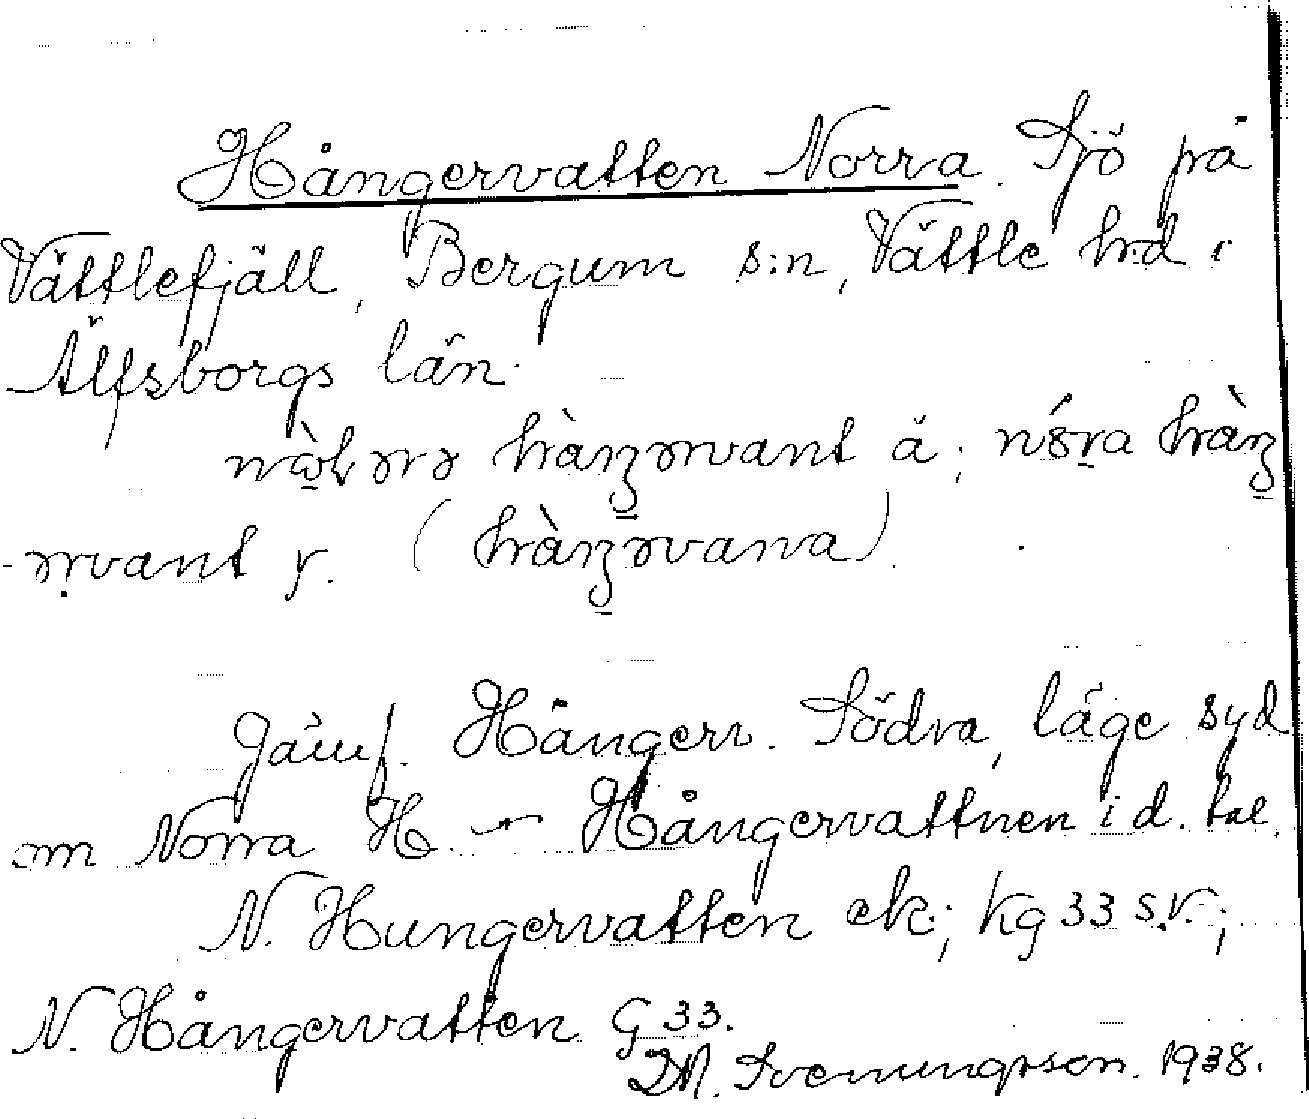 Hångervatten Norra. Sjö på
Vättlefjäll, Bergum s:n, Vättle h:d i
Älfsborgs län.
Jämf. Hångerv. Södra, läge syd
om Norra H. — Hångervattnen i d. tal.
N. Hungervatten ek.; kg 33 s.v.;
N. Hångervatten G 33.
D.M. Svenungsson. 1938.